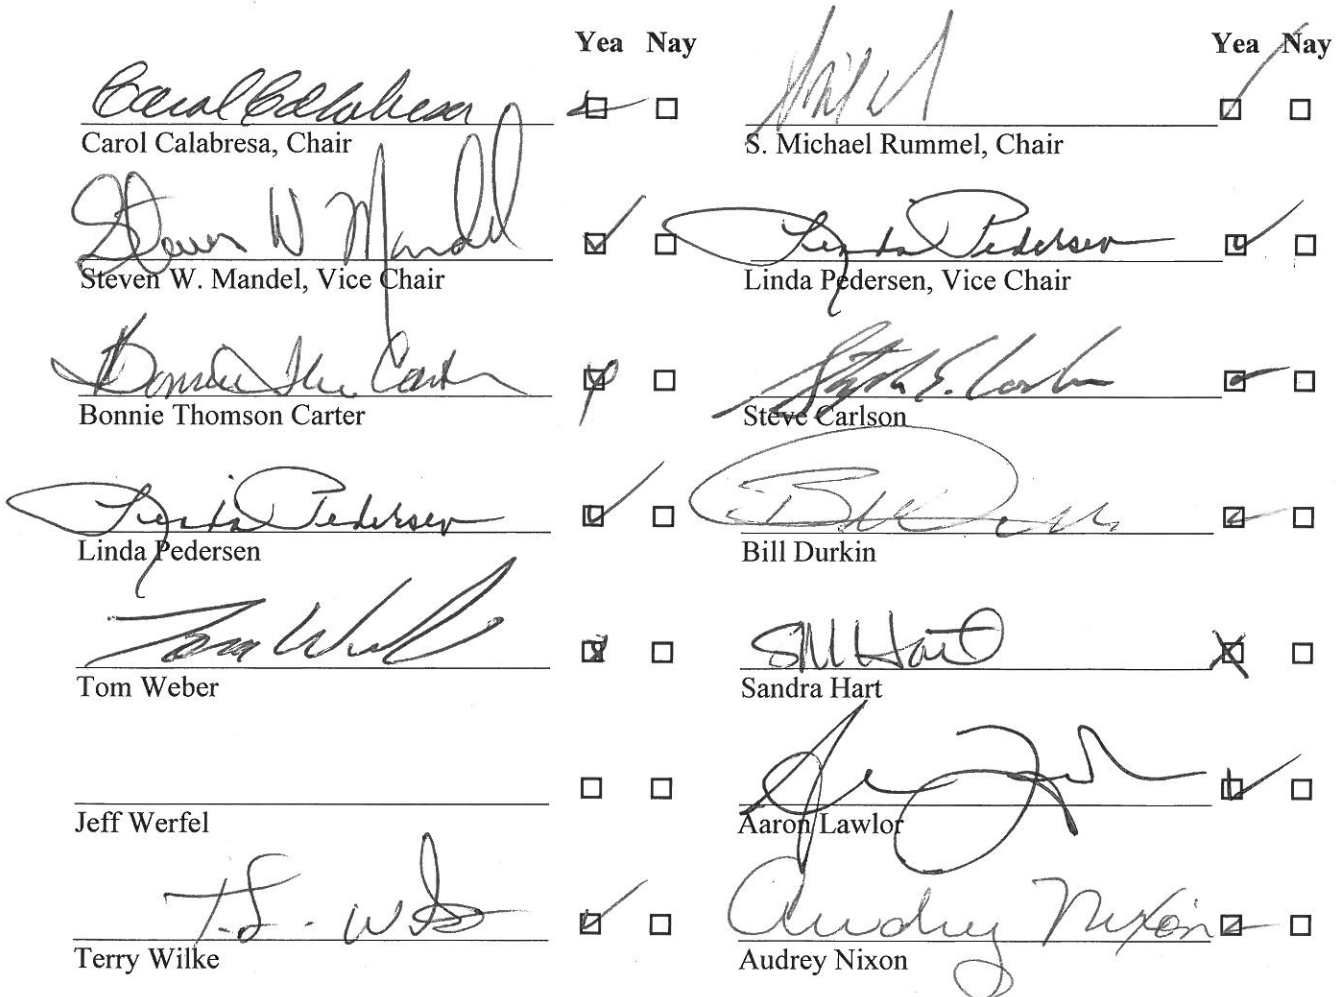 Yea Nay
Carol Calabresa
Carol Calabresa, Chair
Steven W Mandel
Steven W. Mandel, Vice Chair
Bonnie Thomson Carter
Linda Pedersen
Linda Pedersen
Tom Weber
Tom Weber
Jeff Werfel
Terry Wilke
Yea Nay
S. Michael Rummel, Chair
Linda Pedersen
Linda Pedersen, Vice Chair
Steve Carlson
Bill Durkin
SM Hart
Sandra Hart
Aaron Lawlor
Audrey Nixon
Audrey Nixon